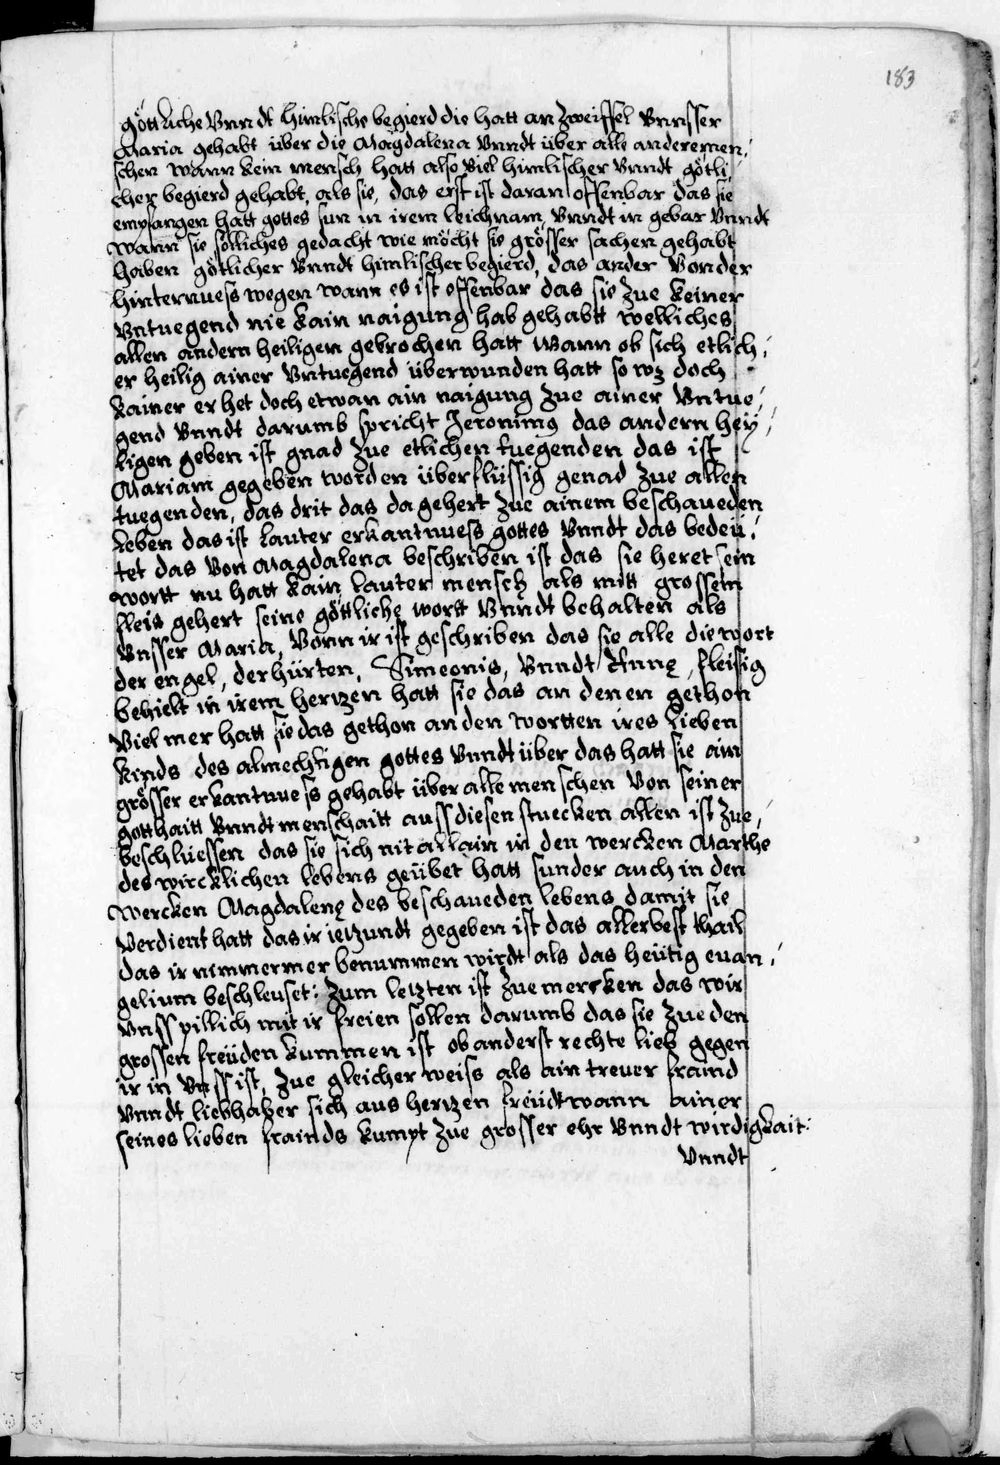 183
göttliche Vnndt himlische begierd die hatt an Zweiffel Vnnsser
Maria gehabt über die Magdalena Vnndt über alle anderemen¬
schen wann kein mensch hatt also Viel himlischer Vnndt götli¬
cher begierd gehabt, als sie, das erst ist daran offenbar das sie
empfangen hatt gottes sun in irem leichnam, Vnndt in gebar Vnndt
wann sie sölliches gedacht wie möcht sie grösser sachen gehabt
haben götlicher Vnndt himlischer begierd, das ander Von der
hinternuess wegen wann es ist offenbar das sie Zue keiner
Vntuegend nie kain naigung hab gehabtt welliches
allen andern heiligen gebrochen hatt wann ob sich etlich¬
er heilig ainer Vntuegend überwunden hatt so wz doch
kainer er het doch etwan ain naigung Zue ainer Vntue¬
gend Vnndt darumb spricht Jeronimg das andern hey¬
ligen geben ist gnad Zue etlichen tuegenden das ist
Mariam gegeben worden überflüssig genad Zue allen
tuegenden, das drit das da gehert Zue ainem beschaueden
leben das ist lauter erkantnuess gottes Vnndt das bedeü¬
tet das Von Magdalena beschriben ist das sie heret sein
wortt nu hatt kain lauter mensch als mitt grossem
fleis gehert seine göttliche wortt Vnndt behalten als
Vnsser Maria, Vonn ir ist geschriben das sie alle die wort
der engel, der hürten, Simeonis, Vnndt Annę, fleisig
behielt in irem hertzen hatt sie das an denen gethon
Viel mer hatt sie das gethon an den wortten ires lieben
kinds des almechtigen gottes Vnndt über das hatt sie ain
grösser erkantnuess gehabt über alle menschen Von seiner
gotthaitt Vnndt menschaitt auss diesen stuecken allen ist Zue¬
beschliessen das sie sich nit allain in den wercken Marthe
des wircklichen lebens geübet hatt sunder auch in den
wercken Magdalenę des beschaueden lebens damit sie
Verdient hatt das ir ietzundt gegeben ist das allerbest thail
das ir nimmermer benummen wirdt als das heütig euan¬
gelium beschleuset: Zum letzten ist Zue mercken das wir
Vnss pillich mit ir freien sollen darumb das sie Zue den
grossen freüden kummen ist ob anderst rechte lieb gegen
ir in Vnss ist, Zue gleicher weiss als ain treuer fraind
Vnndt liebhaber sich aus hertzen freüdt wann ainer
seines lieben frainds kumpt Zue grosser ehr Vnndt wirdigkait:
Vnndt